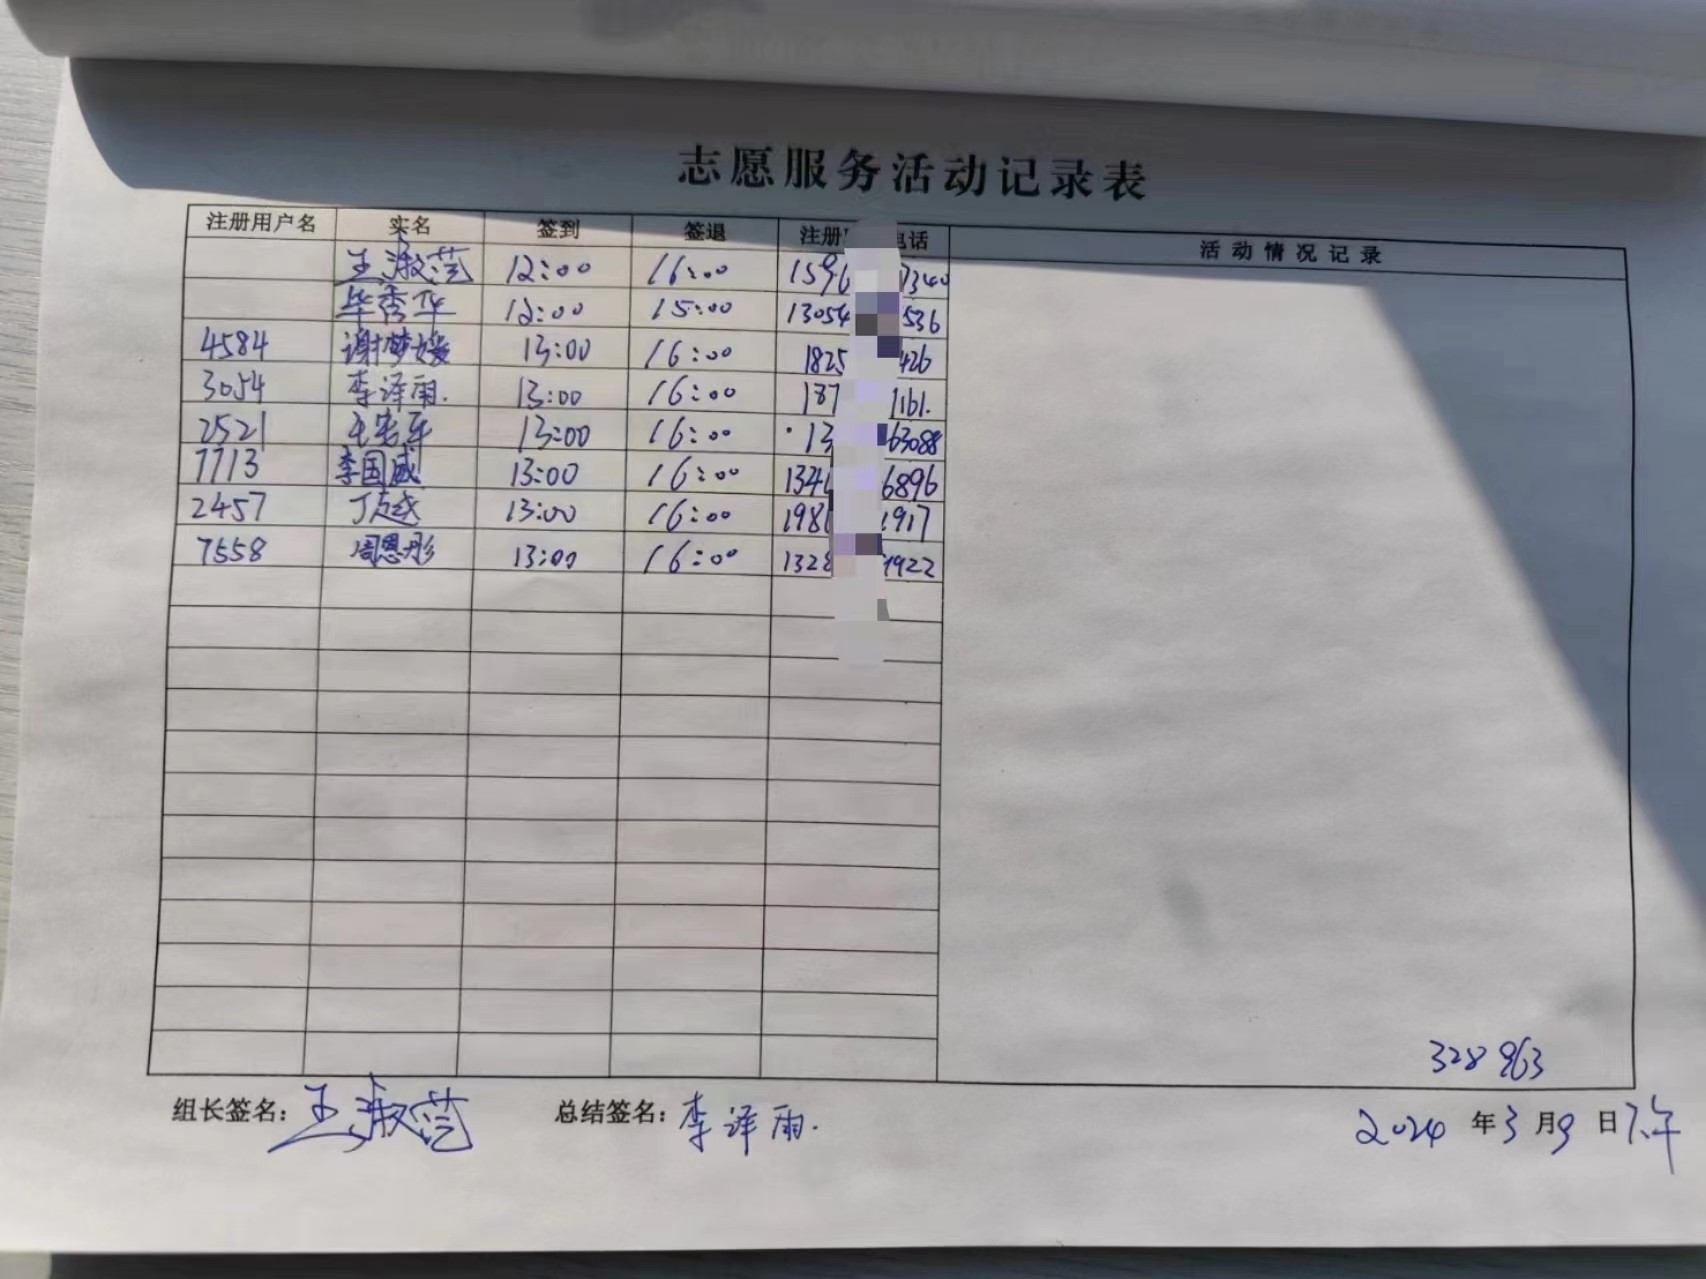 志愿服务活动记录表
注册用户名 实名 签到 签退 注册 电话 活动情况记录
王淑范 12:00 16:00 1596 7340
毕秀华 12:00 15:00 13054 536
4584 谢梦媛 13:00 16:00 1825 426
3054 李泽雨. 13:00 16:00 187 1161.
2521 13:00 16:00 13 63088
7713 李国威 13:00 16:00 134 6896
2457 丁越 13:00 16:00 198 1917
7558 周恩彤 13:00 16:00 1328 1922
328963
组长签名: 王淑范 总结签名: 李泽雨. 2024 年 3 月 9 日下午